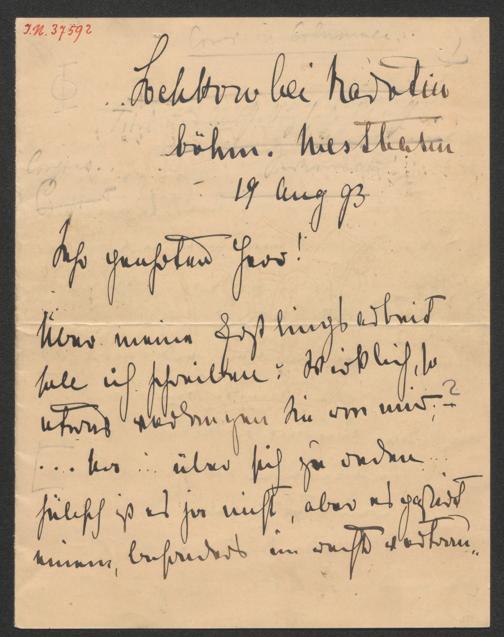 I.N. 37592
Lochkow bei Radotin
böhm. Westbahn
19 Aug 93
Sehr geehrter Herr!
Über meine Erstlingsarbeit
soll ich schreiben? Wirklich, so
etwas verlangen Sie von mir,?
... so über sich zu reden ...
hübsch ist es ja nicht, aber es passiert
einem, besonders im recht vertrau„